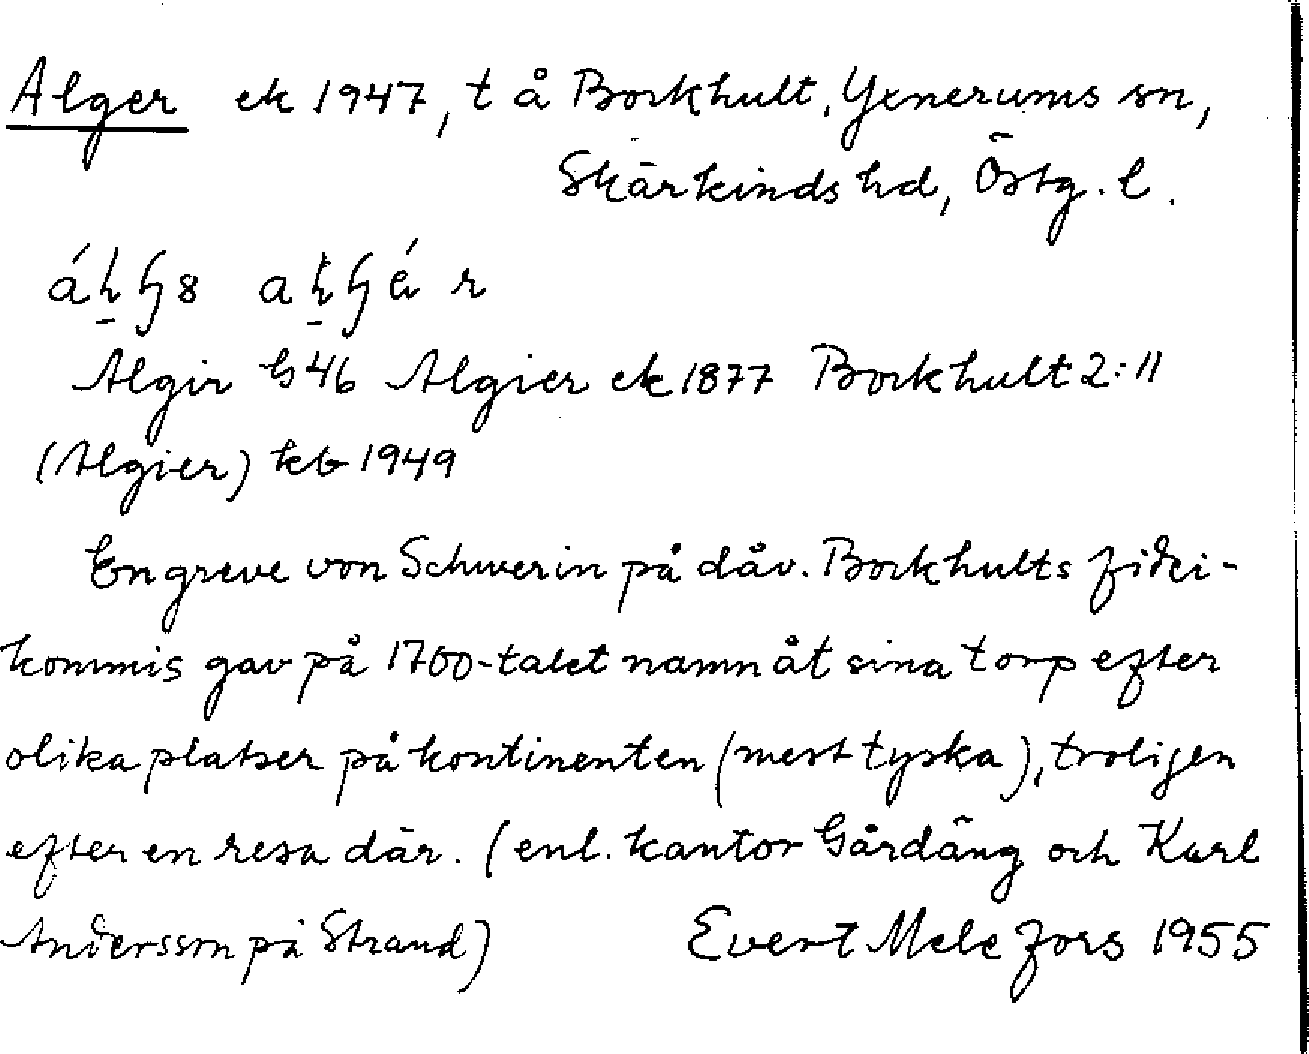 Alger ek 1947, t å Borkhult, Yxnerums sn,
Skärkinds hd, Östg. l.
Algir G46 Algier ek 1877 Borkhult 2:11
(Algier) kb 1949
En greve von Schwerin på dåv. Borkhults fidei-
kommis gav på 1700-talet namn åt sina torp efter
olika platser på kontinenten (mest tyska), troligen
efter en resa där. (enl. kantor Gårdäng och Karl
Andersson på Strand) Evert Melefors 1955